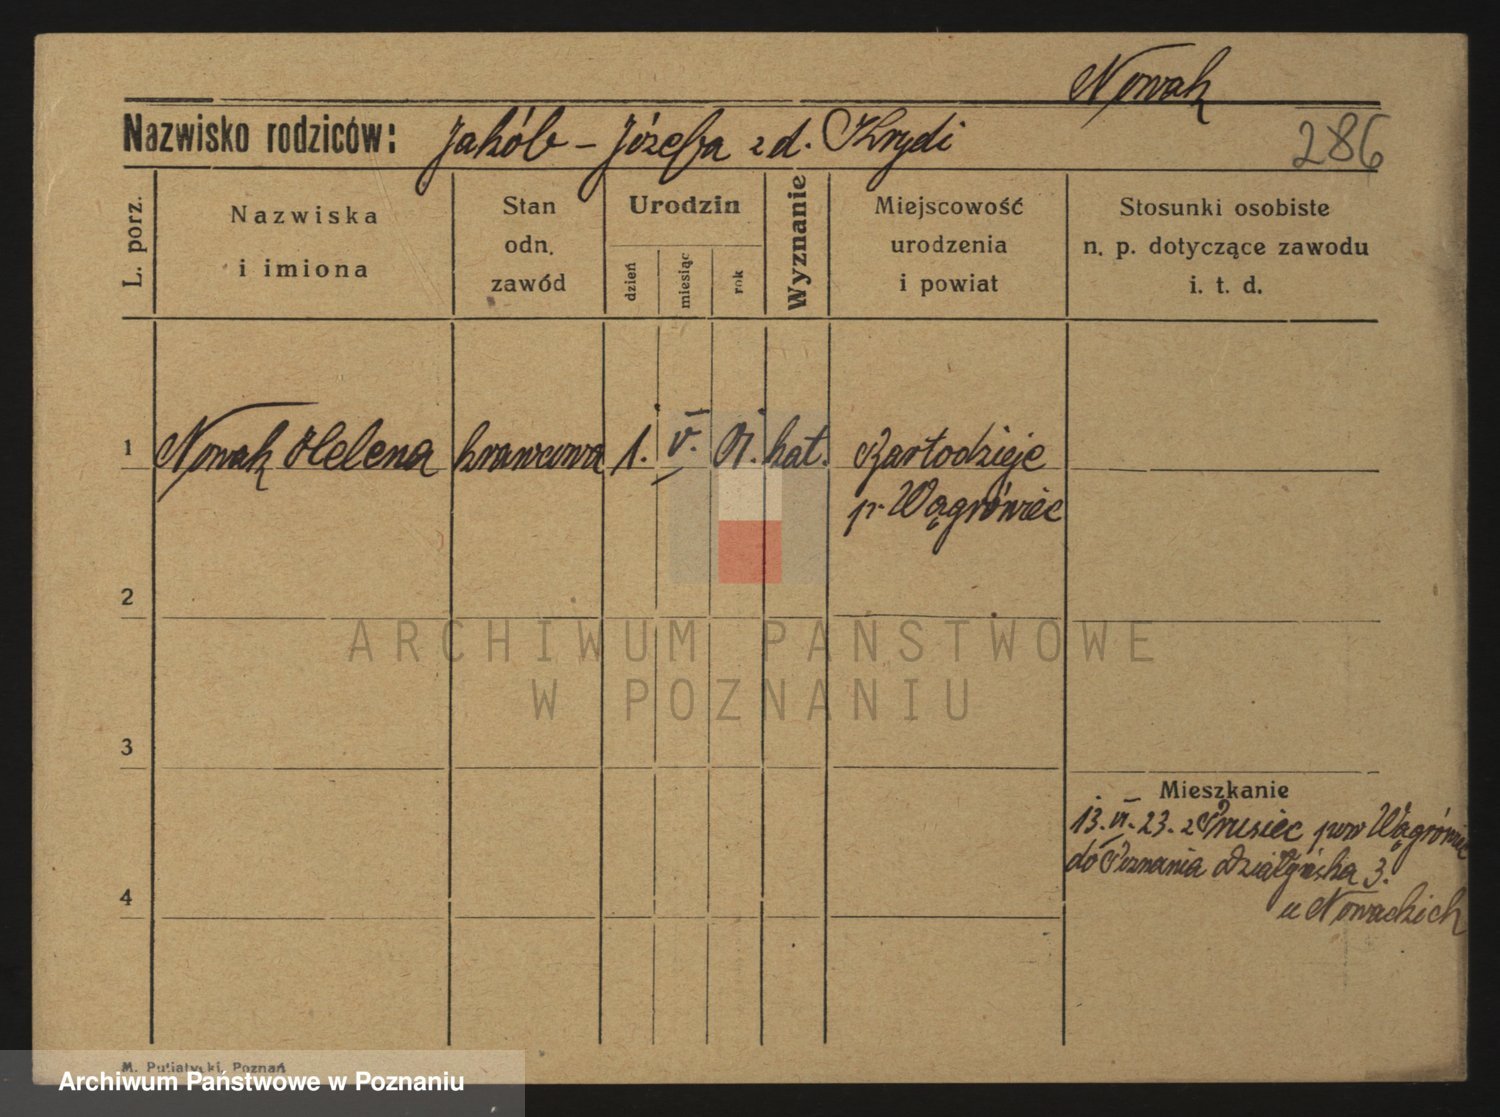 Nowak
Nazwisko rodziców: Jakób – Józefa z d. Krydi
286
L. porz.
Nazwiska i imiona
Stan odn. zawód
Urodzin
dzień miesiąc rok
Wyznanie
Miejscowość urodzenia i powiat
Stosunki osobiste n. p. dotyczące zawodu i. t. d.
1 Nowak Helena krawcowa 1. V. 01. kat. Bartodzieje
p. Wągrówiec
2
ARCHIWUM PAŃSTWOWE
W POZNANIU
3
Mieszkanie
13. VI. 23. z Prusiec pow Wągrówiec
do Poznania Działyńska 3.
u Nowackich
4
M. Putiatycki, Poznań
Archiwum Państwowe w Poznaniu